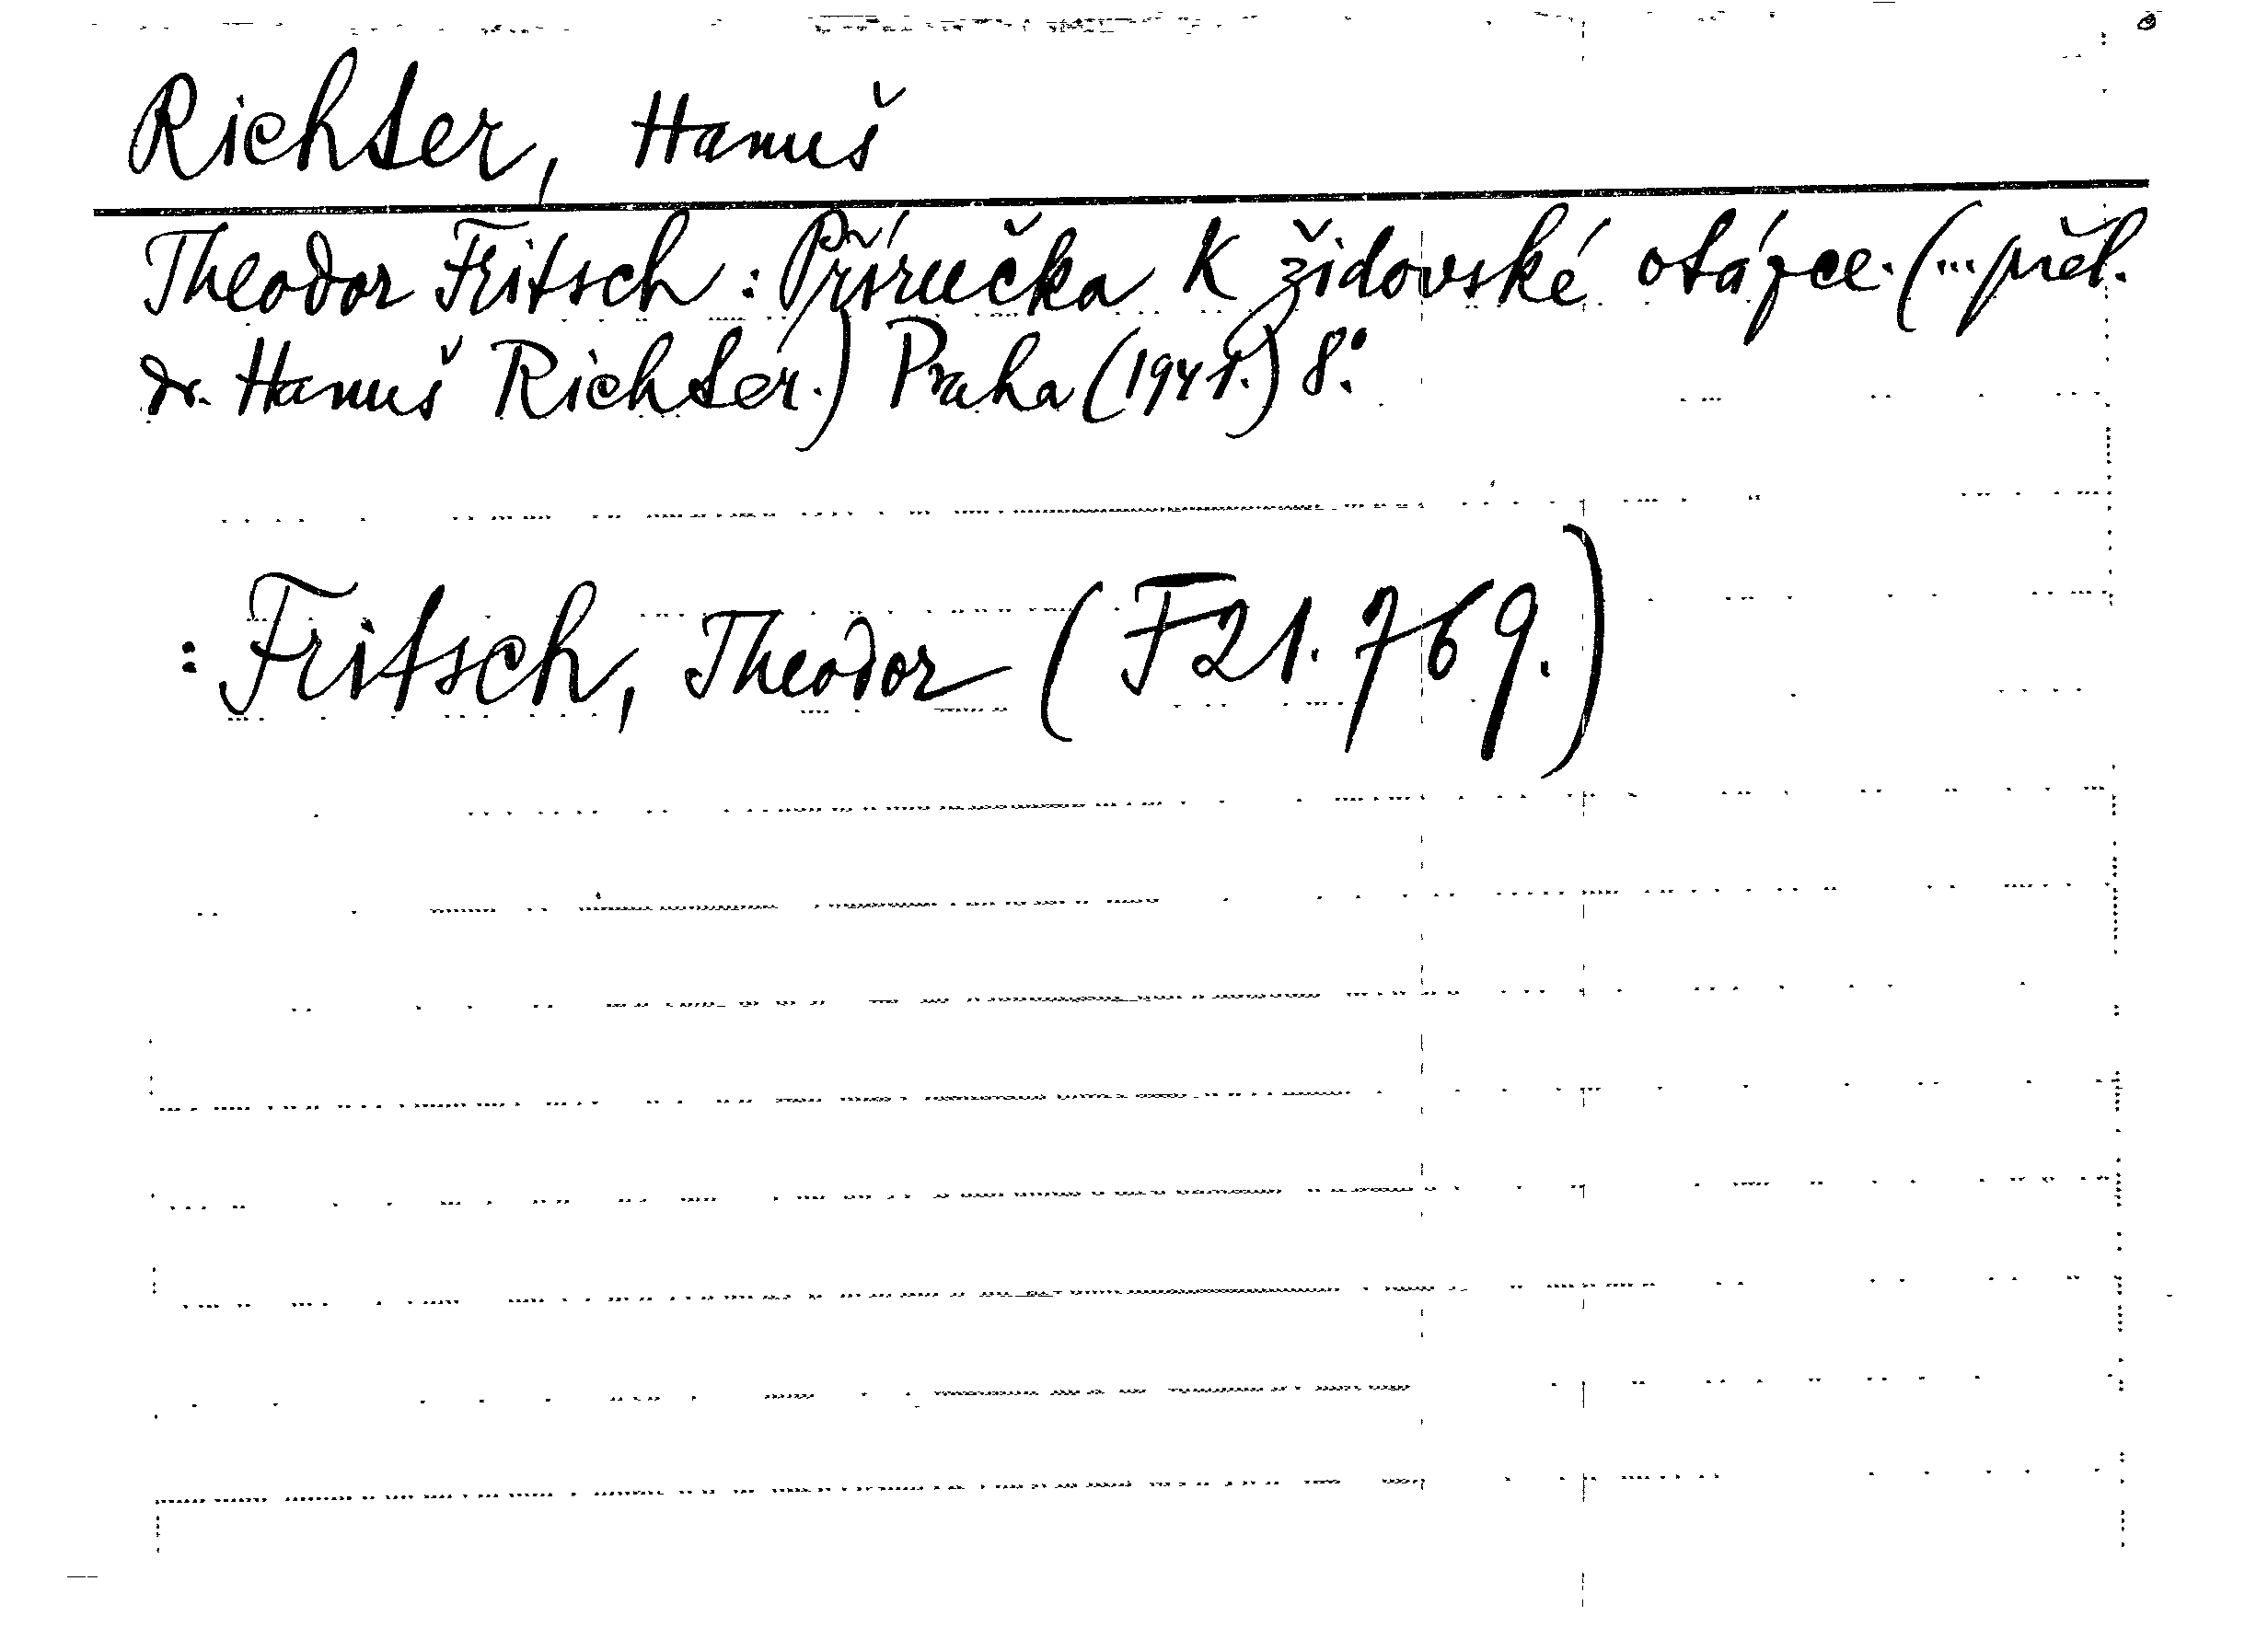 Richter, Hanuš
Theodor Fritsch: Příručka k židovské otázce. (...přel.
dr. Hanuš Richter.) Praha (1941.) 8°.
: Fritsch, Theodor (F21.769.)